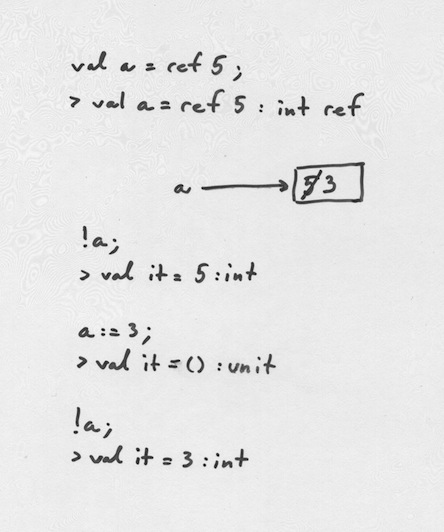 val a = ref 5;
> val a = ref 5 : int ref
a 5 3
!a;
> val it = 5 : int
a := 3;
> val it = () : unit
!a;
> val it = 3 : int